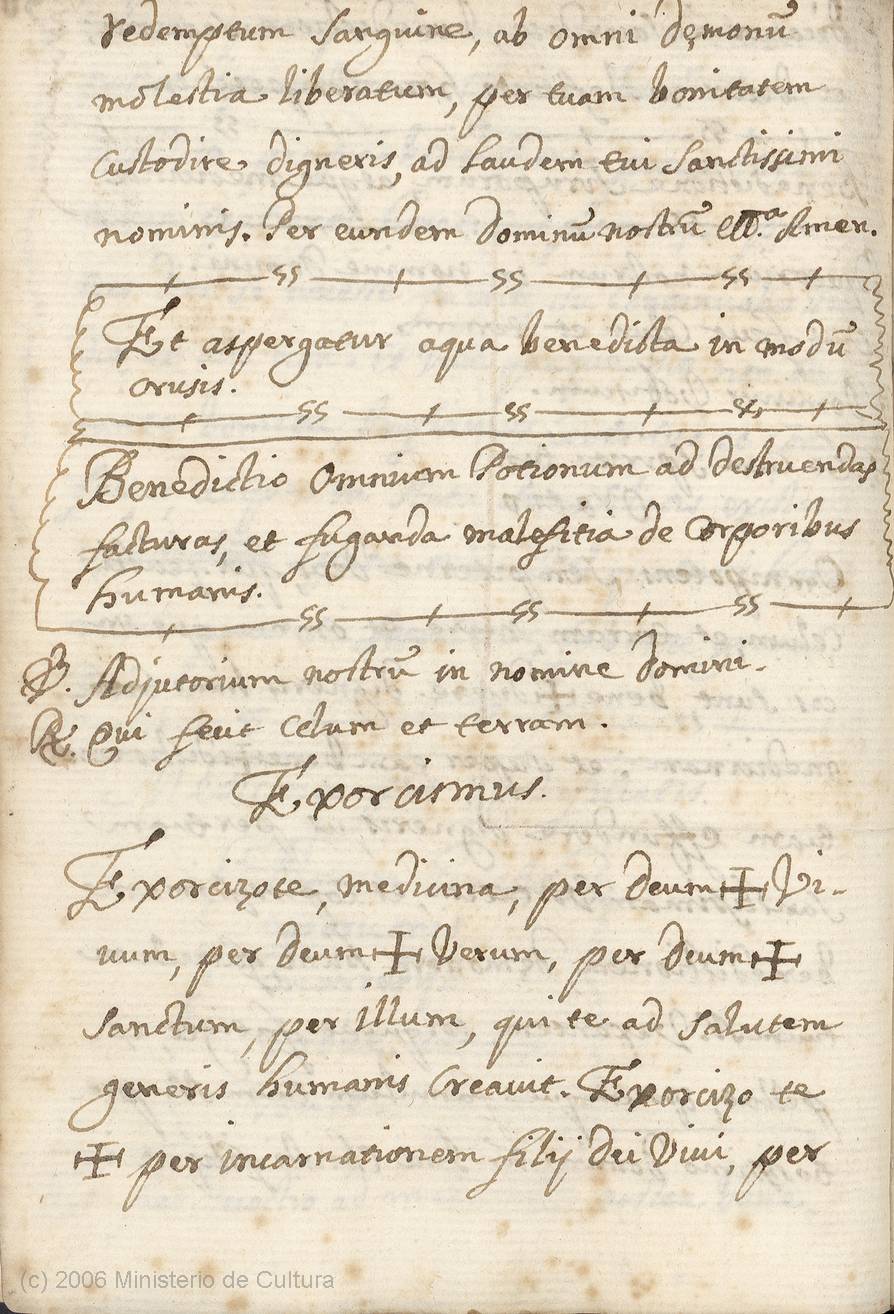 redemptum sanguine, ab omni dęmonũ
molestia liberatum, per tuam bonitatem
Custodire digneris, ad Laudem tui Sanctissimi
nominis. Per eundem dominũ nostrũ Amen.
Et aspergatur aqua benedicta in modũ
crusis.
Benedictio Omnium Potionum ad destruendas
facturas, et fuganda malefitia de Corporibus
humanis.
℣. Adjutorium nostrũ in nomine domini.
℟. Qui fecit Celum et terram.
Exorcismus.
Exorcizote, medicina, per deum ✠ Vi-
uum, per deum ✠ Verum, per deum ✠
Sanctum, per illum, qui te ad Salutem
generis humanis Creauit. Exorcizo te
✠ per incarnationem filij dei Viui, per
(c) 2006 Ministerio de Cultura